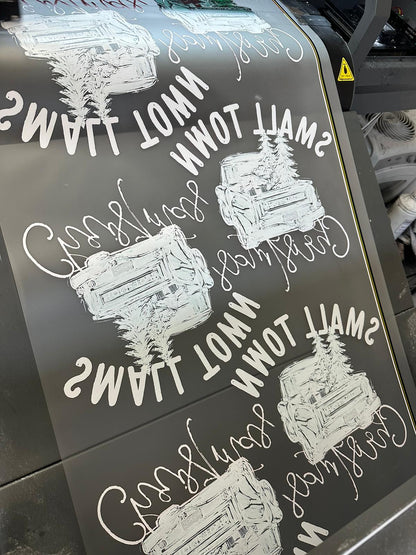 Christmas
SMALL TOWN
SMALL TOWN
Christmas
Christmas
SMALL TOWN
SMALL TOWN
Christmas
Christmas
N